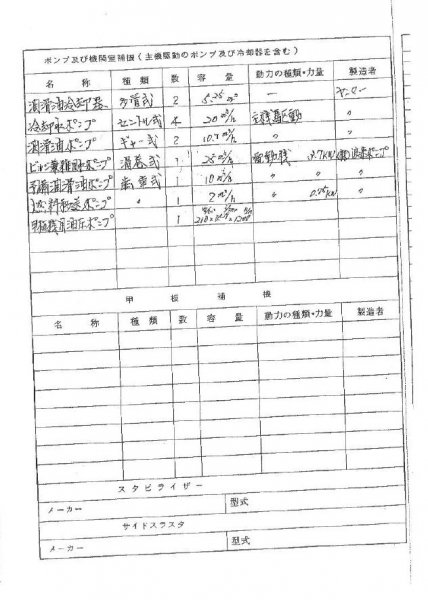 ポンプ及び機関室補機(主機駆動のポンプ及び冷却器を含む)
名 称 種 類 数 容 量 動力の種類・力量 製造者
潤滑油冷却器 多管式 2 5.25 m² — ヤンマー
冷却水ポンプ セントル式 4 20 m³/h 主機駆動 〃
潤滑油ポンプ ギヤー式 2 m³/h 〃 〃
ビルジ兼雑用水ポンプ 渦巻式 1 25 m³/h 電動機 3.7KW ポンプ
予備潤滑油ポンプ 歯車式 1 10 m³/h 〃 〃
燃料移送ポンプ 〃 1 2 m³/h 〃 〃
油圧ポンプ 1
甲 板 補 機
名 称 種 類 数 容 量 動力の種類・力量 製造者
スタビライザー
メーカー 型式
サイドスラスタ
メーカー 型式